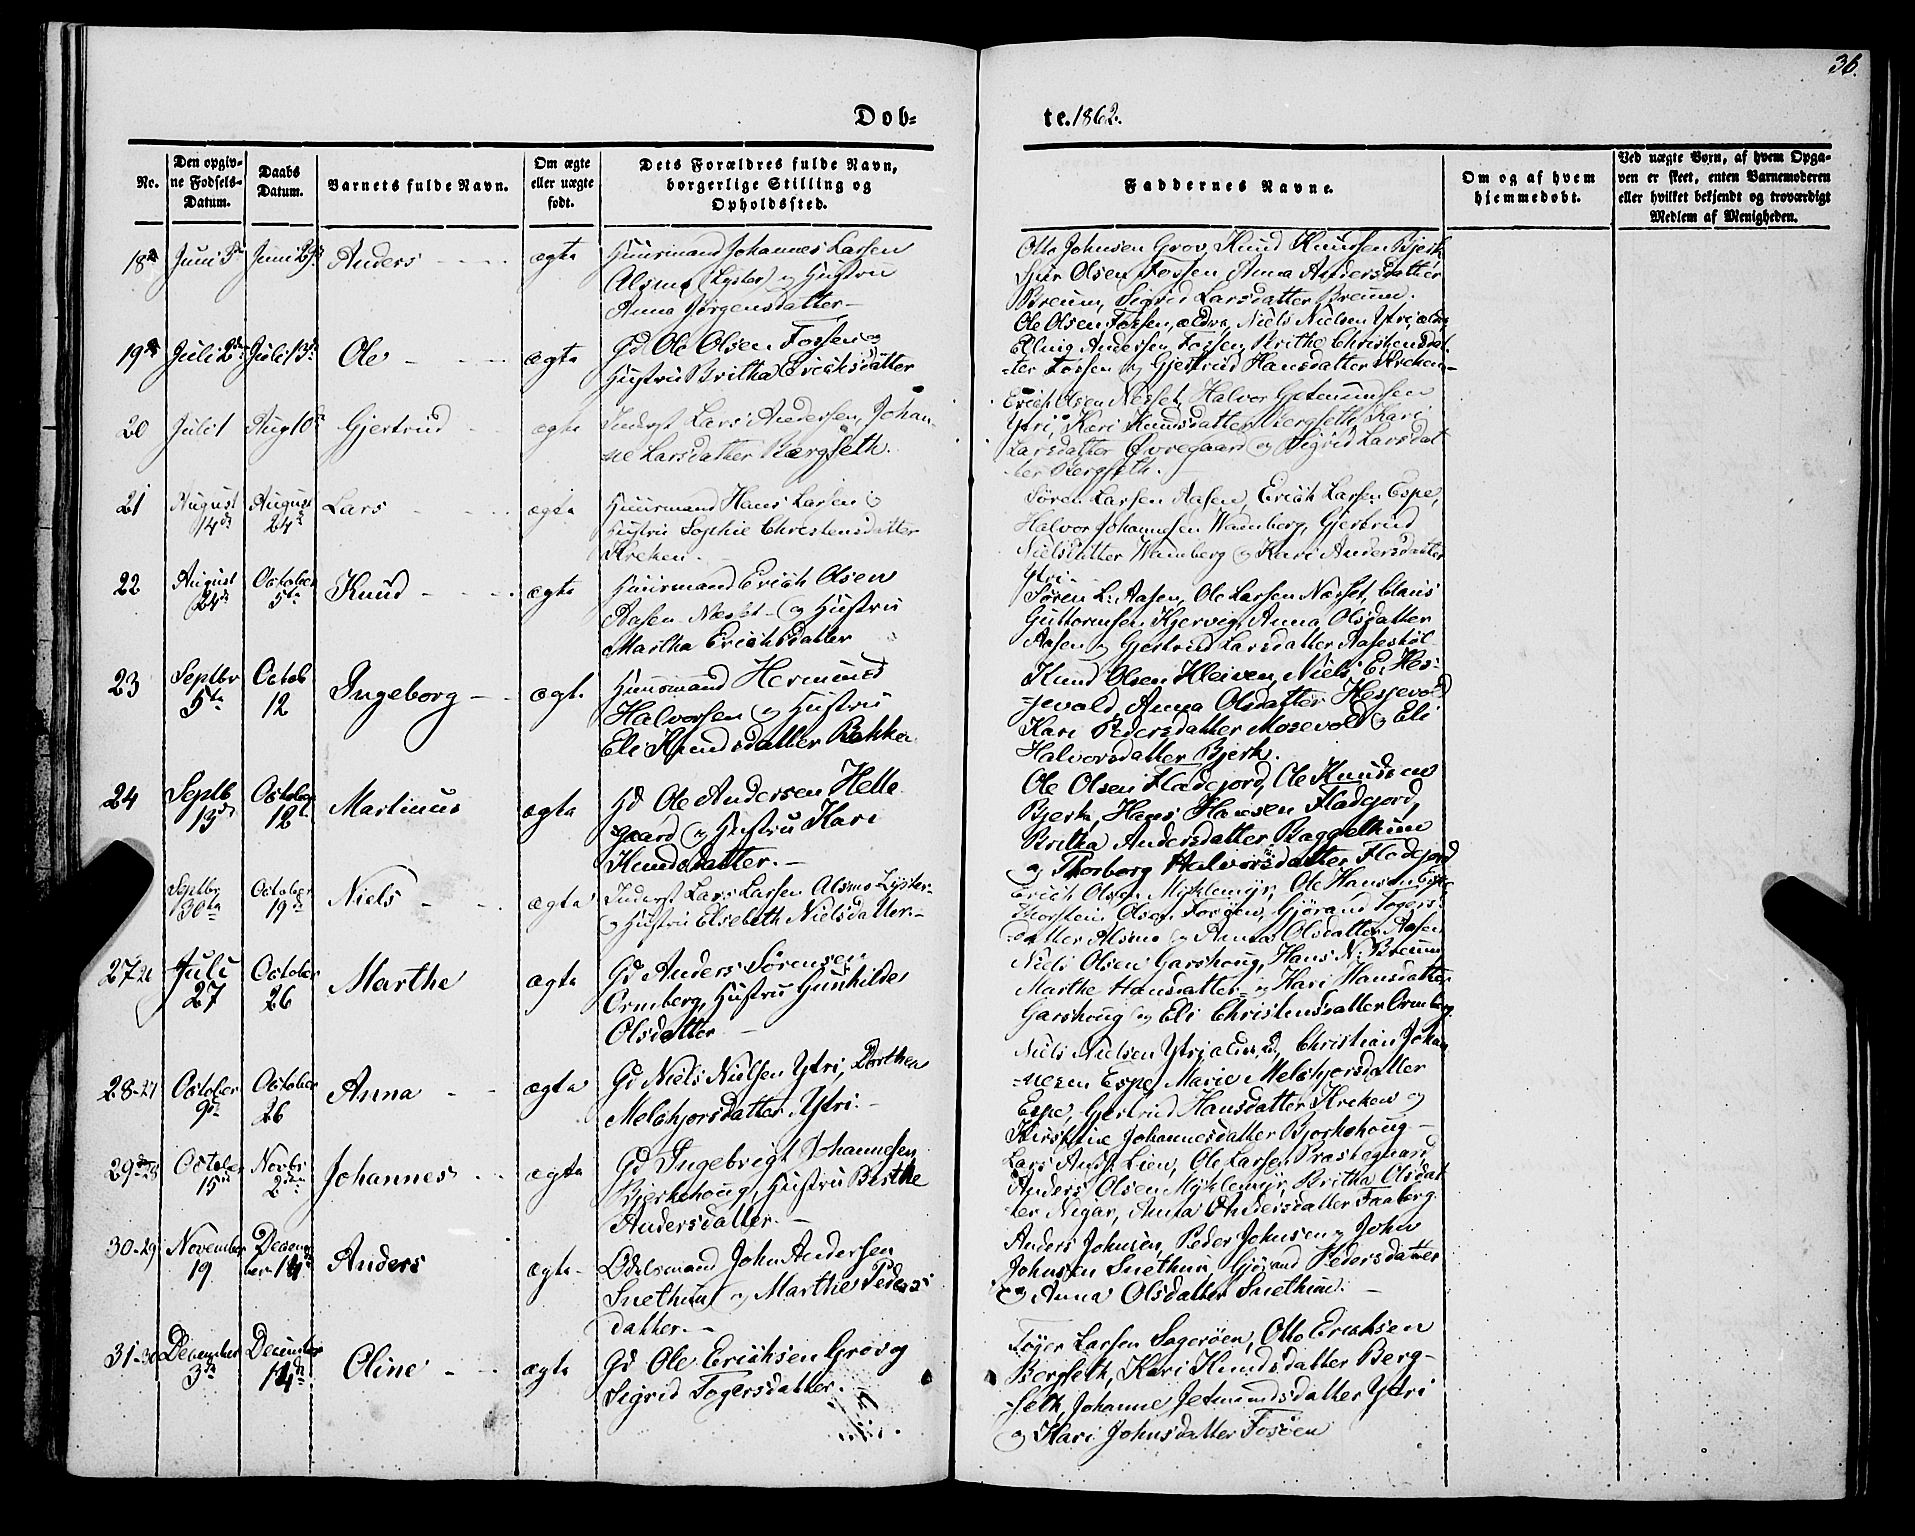 36.
Døb- te. 1862.
No.
Den opgiv-
ne Fødsels-
Datum.
Daabs
Datum.
Barnets fulde Navn.
Om ægte
eller uægte
født.
Dets Forældres fulde Navn,
borgerlige Stilling og
Opholdssted.
Faddernes Navne.
Om og af hvem
hjemmedøbt.
Ved uægte Børn, af hvem Opga-
ven er skeet, enten Barnemoderen
eller hvilket bekjendt og troværdigt
Medlem af Menigheden.
18 Juni Juni Anders ægte
Huusmand Johannes Larsen
Alsmo (Lyster) og Hustru
Anna Jørgensdatter
Otto Johnsen Grov, Knud Knudsen Bjerk
Olsen Fossen Anna Andersdatter
Breum, Sigrid Larsdatter Breum.
19 Juli 2 Juli 13 Ole ægte
Gd Ole Olsen Fossen og
Hustru Britha Erichsdatter
Ole Olsen Fossen, ældre, Niels Nielsen Ytri, ældre
Elling Andersen Fossen, Brithe Christensdat-
ter Fossen og Gjertrud Hansdatter Kreken
20 Juli 1 Aug 10 Gjertrud ægte
Inderst Lars Andersen, Johan-
ne Larsdatter Bergseth.
Erich Olsen Nesset, Halvor Getmundsen
Ytri, Kari Knudsdatter Bergseth, Kari
Larsdatter Øvregaard og Sigrid Larsdat
ter Bergseth.
21 August 14de August 24de Lars ægte
Huusmand Hans Larsen og
Hustru Sophie Christensdatter
Kreken.
Søren Larsen Aasen, Erich Larsen Espe,
Halvor Johannesen Wamberg, Gjertrud
Nielsdatter Wamberg og Kari Andersdatter
Ytri
22 August 24de October 5te Knud ægte
Huusmand Erich Olsen
Aasen Nesset og Hustru
Martha Erichsdatter
Søren L. Aasen, Ole Larsen Nesset, Claus
Guttormsen Kjervig, Anna Olsdatter
Aasen og Gjertrud Larsdatter Aasestøl
23 Septbr 5te Octob 12 Ingeborg ægte
Huusmand Hermund
Halvorsen og Hustru
Eli Knudsdatter Bakken
Knud Olsen Kleiven, Niels E. Hes-
jevold, Anna Olsdatter Hesjevold
Kari Pedersdatter Mosevold og Eli
Halvorsdatter Bjerk.
24 Septb 13de October 12te Martinus ægte
Gd Ole Andersen Helle
gaard og Hustru Kari
Knudsdatter.
Ole Olsen Fladejord, Ole Knudsen
Bjerk, Hans Hansen Fladejord,
Britha Andersdatter Baggethun
og Thorborg Halvorsdatter Fladejord
Septbr 30te October 19de Niels ægte
Inderst Lars Larsen Alsmo Lyster
og Hustru Elsebeth Nielsdatter
Erich Olsen Myklemyr, Ole Hansen
Thorstein Olsen Fosøen, Gjørand Togers
datter Alsmo og Anna Olsdatter Aasen
27-26 Juli 27 October 26 Marthe ægte
Gd Anders Sørensen
Ormberg, Hustru Gunhilde
Olsdatter
Niels Olsen Garshoug, Hans N. Breum
Marthe Hansdatter og Kari Hansdatter
Garshoug og Eli Christensdatter Ormberg
28-27 October 9de October 26 Anna ægte
Gd Niels Nielsen Ytri, Dorthea
Melchjorsdatter Ytri.
Niels Nielsen Ytri, Christian Johan
nesen Espe, Marie Melchjorsdatter
Espe, Gjertrud Hansdatter Kreken og
Kirstine Johannesdatter Bjørkehoug
29-28 October 15 Novbr 2den Johannes ægte
Gd Ingebrigt Johannesen
Bjerkehoug, Hustru Birthe
Andersdatter.
Lars Ands. Lien, Ole Larsen Prestegaard
Anders Olsen Myklemyr, Britha Olsdat
ter Nigar, Anna Andersdatter Faaberg.
30-29 November 19 Decem
ber 14 Anders ægte
Odelsmand John Andersen
Snethun og Marthe Peders
datter.
Anders Johnsen, Peder Johnsen og John
Johnsen Snethun, Gjørand Pedersdatter
og Anna Olsdatter Snethun.
31-30 December 3de December 14de Oline ægte
Gd Ole Erichsen Grov og
Sigrid Togersdatter.
Tøger Larsen Sagerøen, Otto Erichsen
Bergseth, Kari Knudsdatter Berg-
seth, Johanne Jetmundsdatter Ytri
og Kari Johnsdatter Fosøen